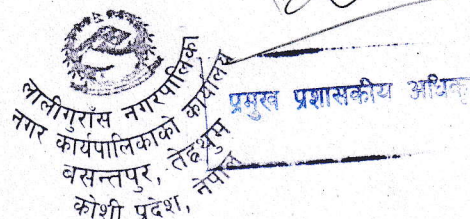 लालीगुराँस नगरपालिका
नगर कार्यपालिकाको कार्यालय
बसन्तपुर, तेह्रथुम
कोशी प्रदेश, नेपाल
प्रमुख प्रशासकीय